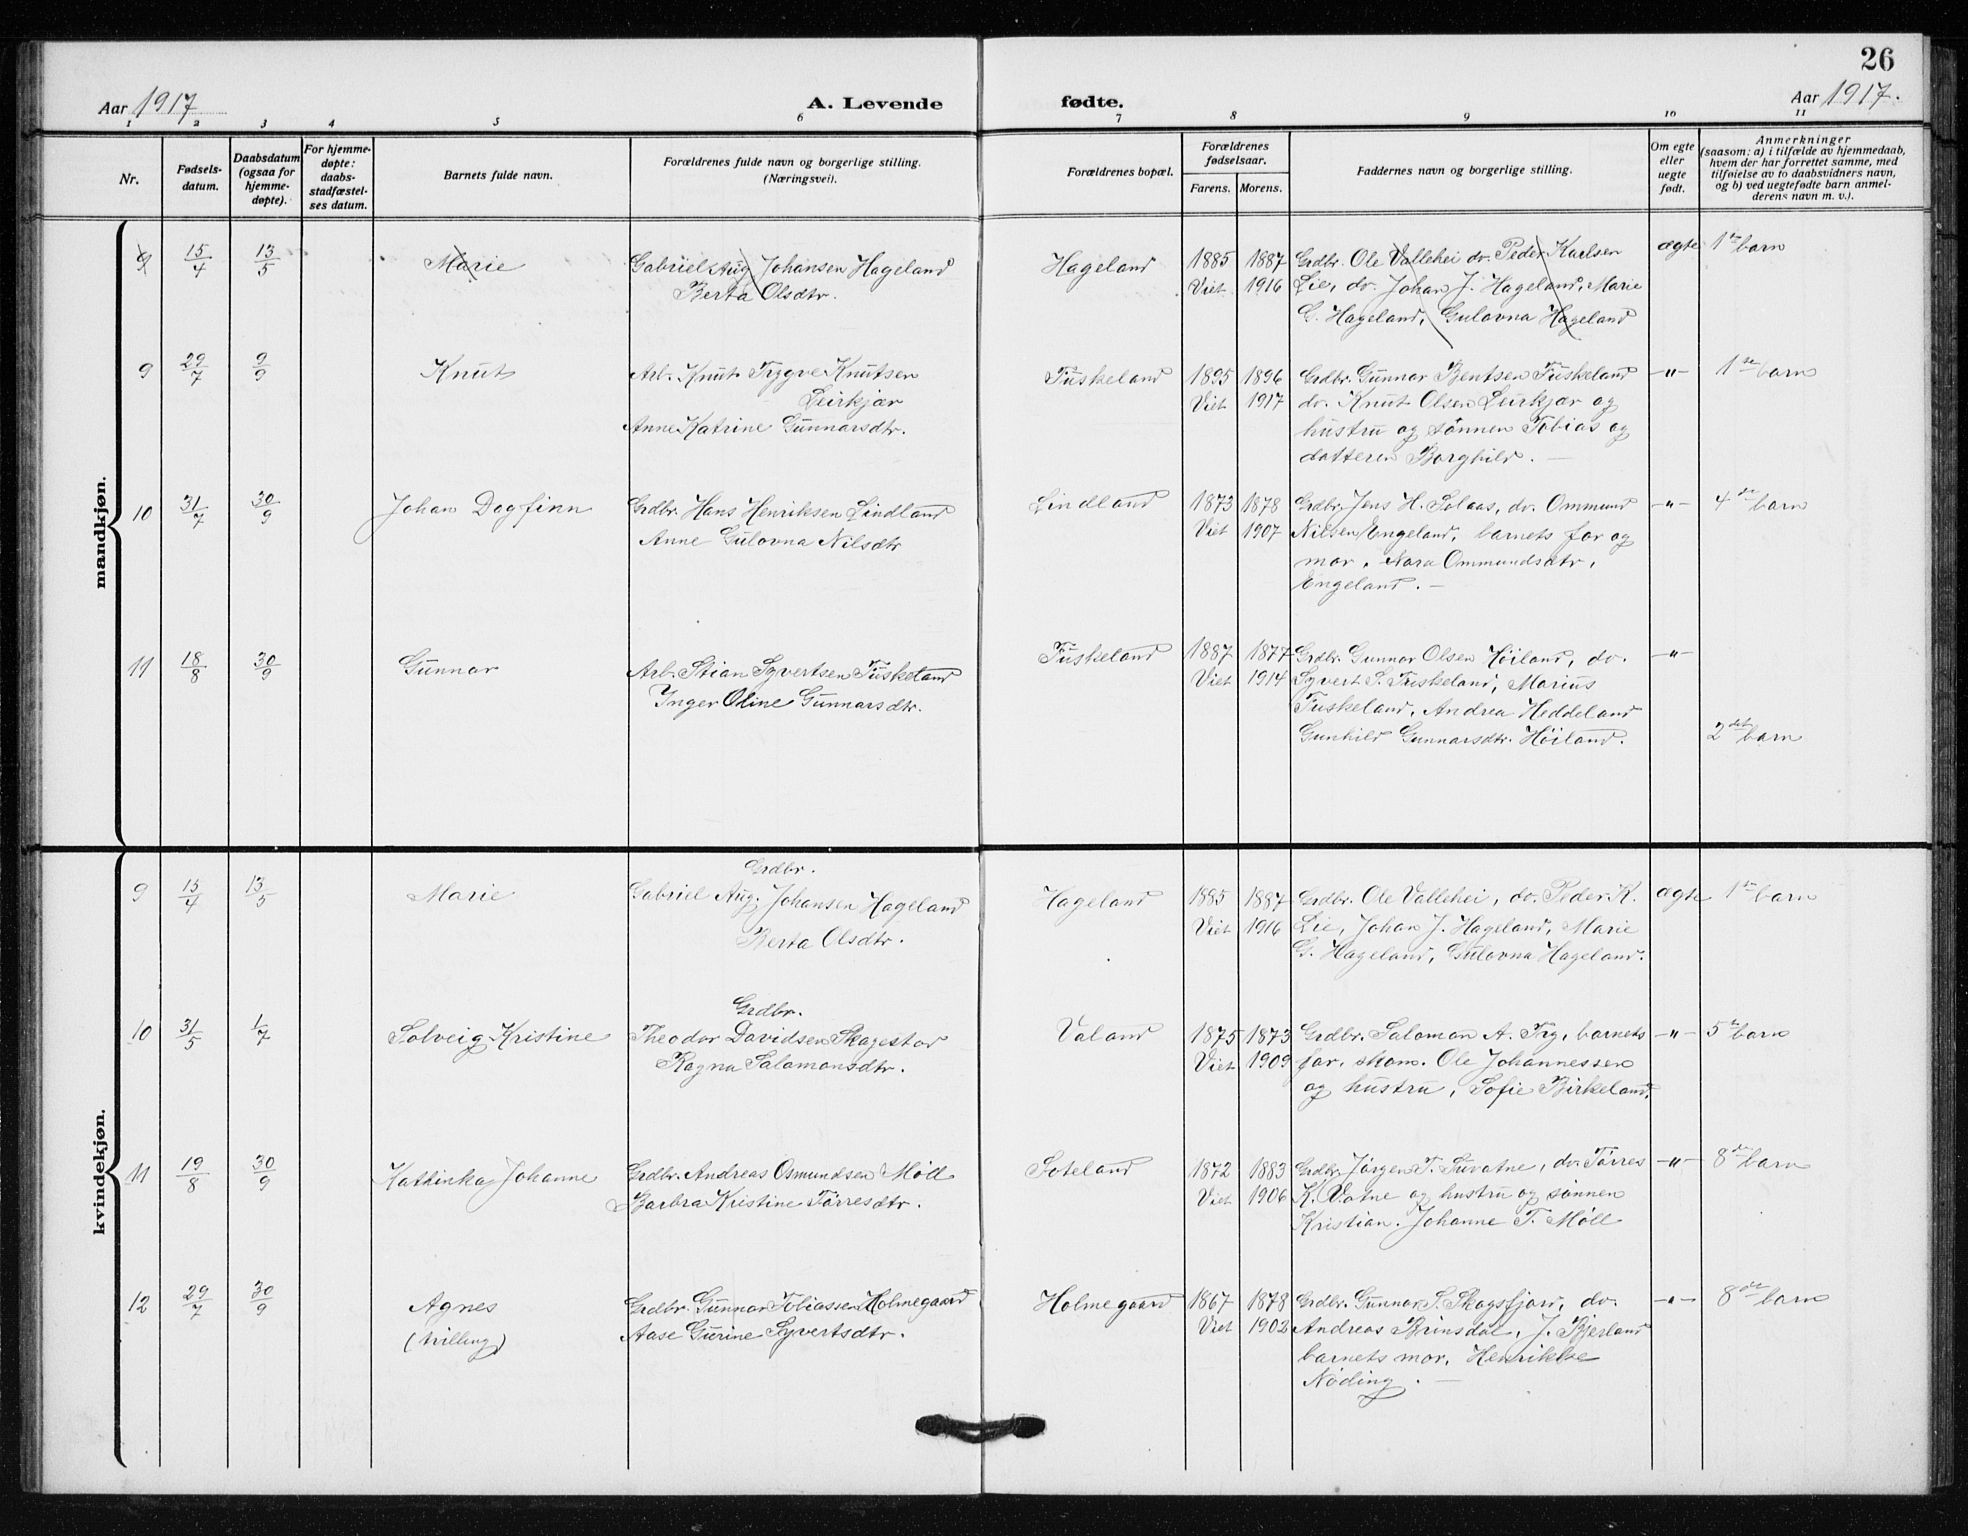 26
Aar 1917
A. Levende fødte.
Aar 1917.
1 2 3 4 5 6 7 8 9 10 11
Nr.
Fødsels-
datum.
Daabsdatum
(ogsaa for
hjemme-
døpte).
For hjemme-
døpte:
daabs-
stadfæstel-
ses datum.
Barnets fulde navn.
Forældrenes fulde navn og borgerlige stilling.
(Næringsvei).
Forældrenes bopæl.
Forældrenes
fødselsaar.
Farens. Morens.
Faddernes navn og borgerlige stilling.
Om egte
eller
uegte
født.
Anmerkninger
(saasom: a) i tilfælde av hjemmedaab,
hvem der har forrettet samme, med
tilføielse av to daabsvidners navn,
og b) ved uegtefødte barn anmel-
derens navn m. v.).
mandkjøn.
9 15/4 13/5 Marie
Gabriel Aug Johansen Hageland
Berta Olsdtr.
Hageland
1885 1887
Viet 1916
Grdbr. Ole Vallehei do. Peder Karlsen
Lie, do. Johan J. Hageland, Marie
G. Hageland, Gulovna Hageland
ægte
1ste barn
9 29/7 9/9 Knut
Arb. Knut Trygve Knutsen
Leirkjær
Anne Katrine Gunnarsdtr.
Fuskeland
1895 1896
Viet 1917
Grdbr. Gunnar Bentsen Fuskeland
do. Knut Olsen Leirkjær og
hustru og sönnen Tobias og
datteren Borghild. —
—"—
1ste barn
10 31/7 30/9 Johan Dagfinn
Grdbr. Hans Henriksen Lindland
Anne Gulovna Nilsdtr
Lindland
1873 1878
Viet 1907
Grdbr. Jens H. Solaas, do. Ommund
Nilsen Engeland, barnets far og
mor, Nora Ommundsdtr,
Engeland. —
—"—
4de barn
11 18/8 30/9 Gunnar
Arb. Stian Syvertsen Fuskeland
Inger Oline Gunnarsdtr.
Fuskeland
1887 1877
Viet 1914
Grdbr. Gunnar Olsen Höiland, do.
Syvert S. Fuskeland, Marius
Fuskeland, Andrea Heddeland
Gunhild Gunnarsdtr. Höiland.
—"—
2det barn
kvindekjøn.
9 15/4 13/5 Marie
Grdbr.
Gabriel Aug. Johansen Hageland
Berta Olsdtr.
Hageland
1885 1887
Viet 1916
Grdbr. Ole Vallehei, do. Peder K.
Lie, Johan J. Hageland, Marie
G. Hageland, Gulovna Hageland.
ægte
1ste barn
10 31/5 1/7 Solveig Kristine
Grdbr.
Theodor Davidsen Skagestad
Ragna Salamonsdtr.
Valand
1875 1873
Viet 1909
Grdbr. Salamon A. Try, barnets
far, skom. Ole Johannessen
og hustru, Sofie Birkeland,
—"—
5te barn
11 19/8 30/9 Kathinka Johanne
Grdbr. Andreas Osmundsen Möll
Barbra Kristine Törresdtr.
Soteland
1872 1883
Viet 1906
Grdbr. Jörgen T. Suvatne, do. Törres
K. Vatne og hustru og sönnen
Kristian. Johanne T. Möll
—"—
8de barn
12 29/7 30/9 Agnes
(trilling)
Grdbr. Gunnar Tobiassen Holmegaard
Aase Gurine Syvertsdtr.
Holmegaard
1867 1878
Viet 1902
Grdbr. Gunnar S. Skagsfjord, do.
Andreas Brinsdal, J. Bjerland
barnets mor, Henrikke
Nöding. —
—"—
8de barn